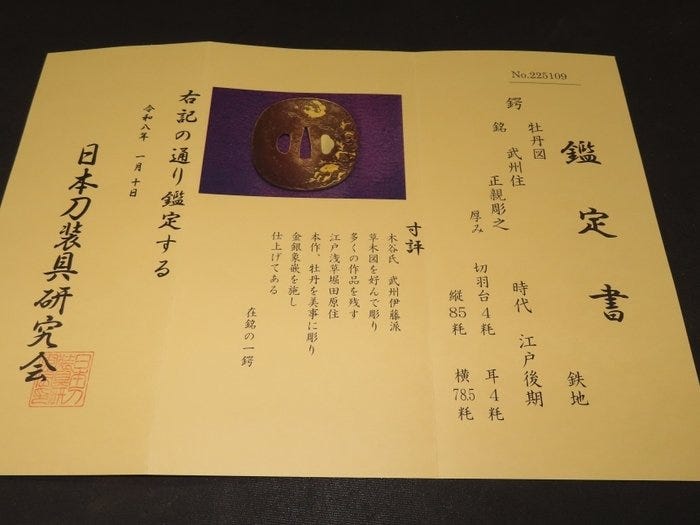 No.225109
鑑定書
鐔 牡丹図 鉄地
銘 武州住
正親彫之 時代 江戸後期
厚み 切羽台4粍 耳4粍
縦85粍 横78.5粍
寸評
木谷氏 武州伊藤派
草木図を好んで彫り
多くの作品を残す
江戸浅草堀田原住
本作、牡丹を美事に彫り
金銀象嵌を施し
仕上げてある
在銘の一鍔
右記の通り鑑定する
令和八年 一月十日
日本刀装具研究会